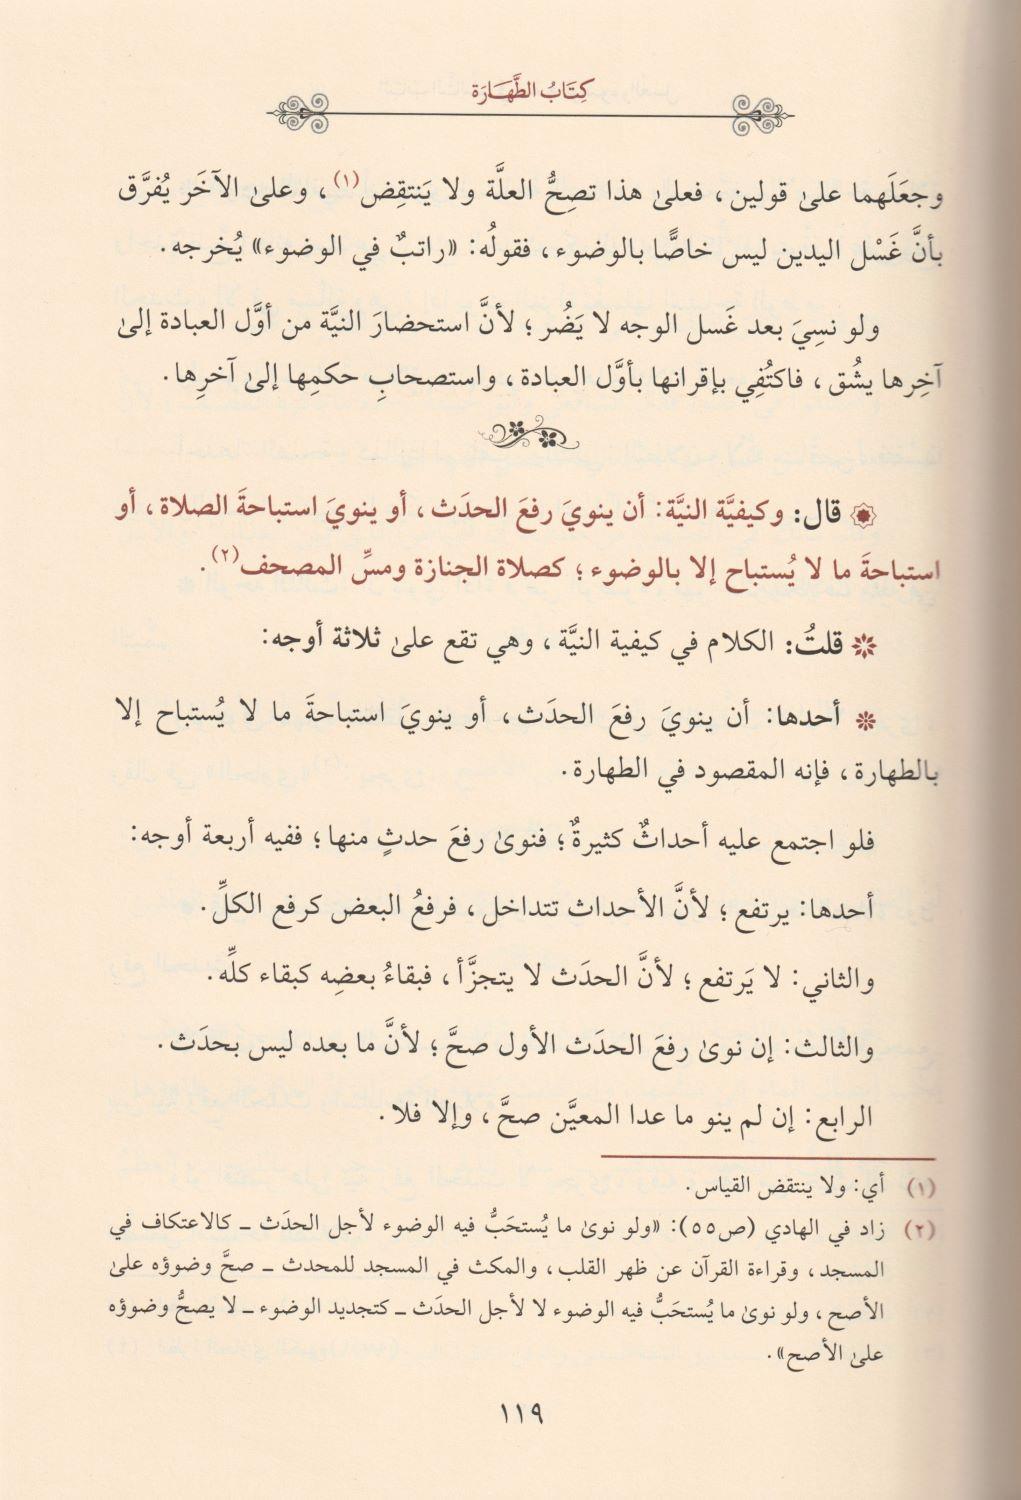 كِتَابُ الطَّهَارَة
وجعَلَهما علىٰ قولين، فعلىٰ هذا تصِحُّ العلَّة ولا يَنتقِض(١)، وعلىٰ الآخَر يُفرَّق
بأنَّ غَسْل اليدين ليس خاصًّا بالوضوء، فقولُه: «راتبٌ في الوضوء» يُخرجه.
ولو نسِيَ بعد غَسل الوجه لا يَضُر؛ لأنَّ استحضارَ النيَّة من أوَّل العبادة إلىٰ
آخِرها يشُق، فاكتُفِي بإقرانها بأوَّل العبادة، واستصحابِ حكمِها إلىٰ آخرِها.
قال: وكيفيَّة النيَّة: أن ينويَ رفعَ الحدَث، أو ينويَ استباحةَ الصلاة، أو
استباحةَ ما لا يُستباح إلا بالوضوء؛ كصلاة الجنازة ومسِّ المصحف(٢).
قلتُ: الكلام في كيفية النيَّة، وهي تقع علىٰ ثلاثة أوجه:
أحدها: أن ينويَ رفعَ الحدَث، أو ينويَ استباحةَ ما لا يُستباح إلا
بالطهارة، فإنه المقصود في الطهارة.
فلو اجتمع عليه أحداثٌ كثيرةٌ؛ فنوىٰ رفعَ حدثٍ منها؛ ففيه أربعة أوجه:
أحدها: يرتفع؛ لأنَّ الأحداث تتداخل، فرفعُ البعض كرفع الكلِّ.
والثاني: لا يَرتفع؛ لأنَّ الحدَث لا يتجزَّأ، فبقاءُ بعضِه كبقاء كلِّه.
والثالث: إن نوىٰ رفعَ الحدَث الأول صحَّ؛ لأنَّ ما بعده ليس بحدَث.
الرابع: إن لم ينو ما عدا المعيَّن صحَّ، وإلا فلا.
(١) أي: ولا ينتقض القياس.
(٢) زاد في الهادي (ص٥٥): «ولو نوىٰ ما يُستحَبُّ فيه الوضوء لأجل الحدَث ــ كالاعتكاف في
المسجد، وقراءة القرآن عن ظهر القلب، والمكث في المسجد للمحدث ــ صحَّ وضوؤه علىٰ
الأصح، ولو نوىٰ ما يُستحَبُّ فيه الوضوء لا لأجل الحدَث ــ كتجديد الوضوء ــ لا يصحُّ وضوؤه
علىٰ الأصح».
١١٩